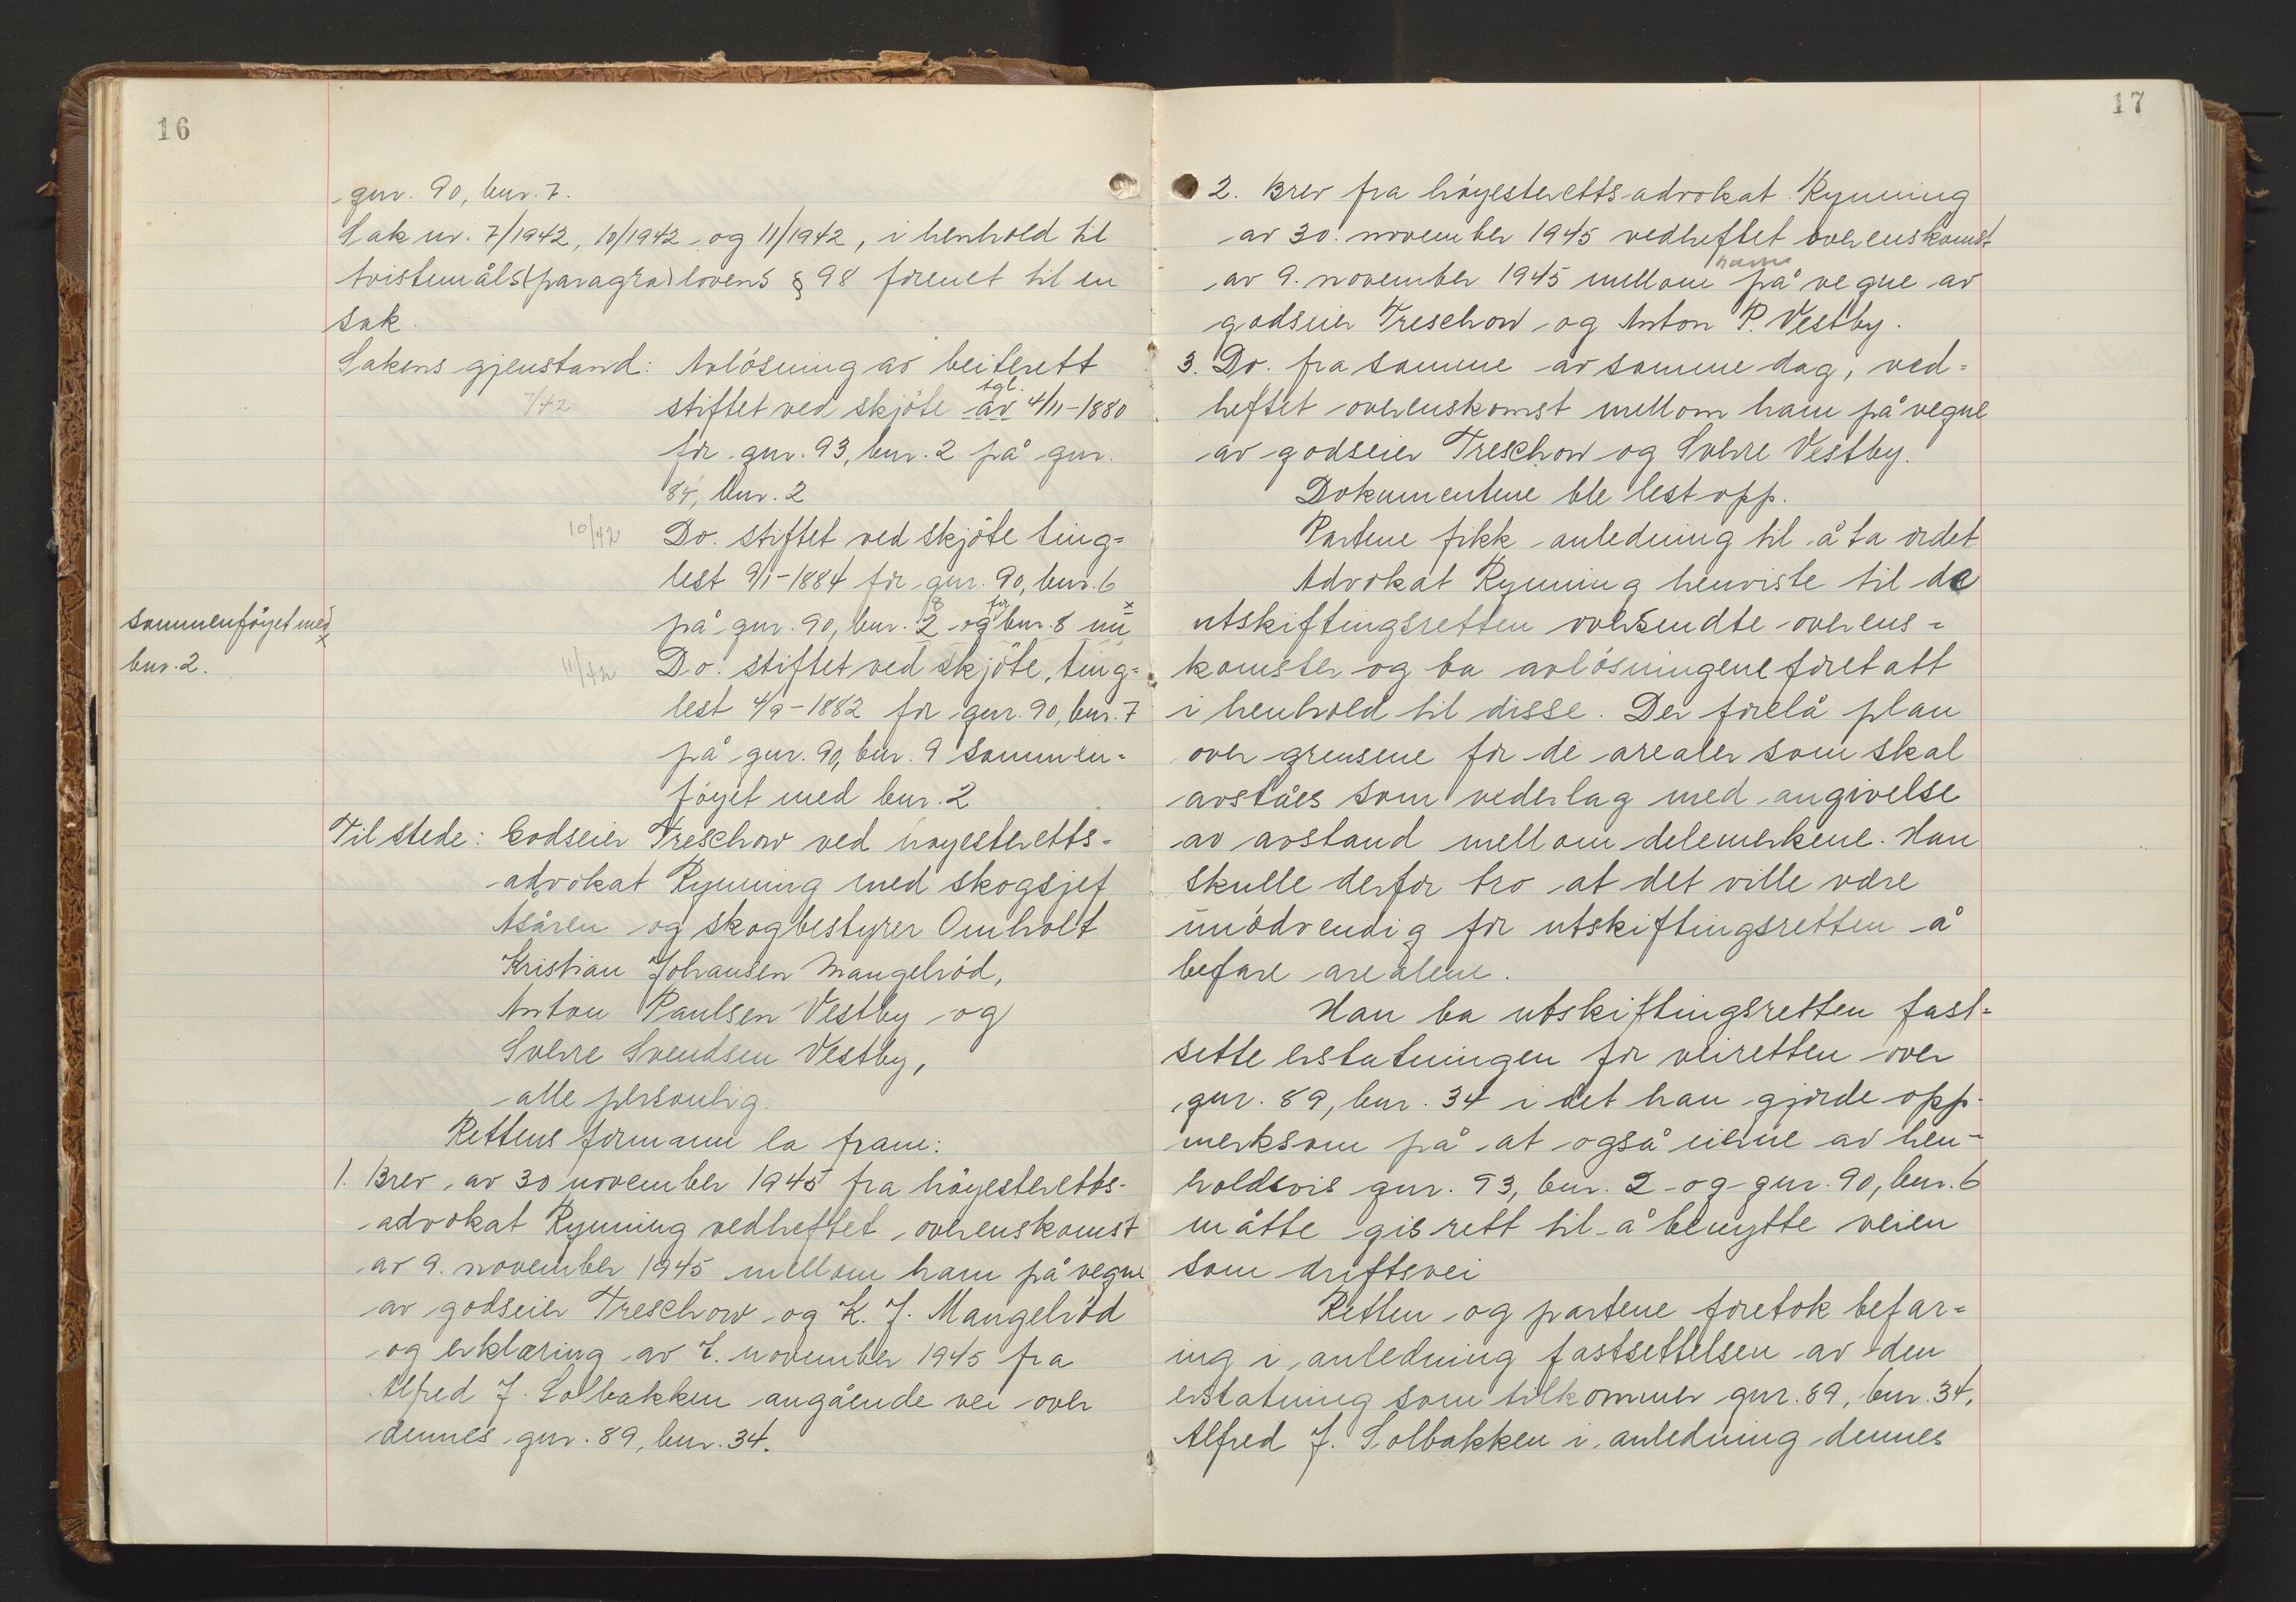 16
gnr. 90, bnr. 7.
Sak nr. 7/1942, 10/1942 og 11/1942, i henhold til
tvistemåls(paragra)lovens § 98 forenet til en
sak.
Sakens gjenstand: Avlösning av beiterett
7/42 stiftet ved skjöte av tgl. 4/11-1880
for gnr. 93, bnr. 2 på gnr.
84, bnr. 2
10/42 Do. stiftet ved skjöte ting=
lest 9/1-1884 for gnr. 90, bnr. 6
på gnr. 90, bnr. 2 og bnr. 8 nu x
sammenföyet med
bnr. 2.
11/42 Do. stiftet ved skjöte, ting=
lest 4/9-1882 for gnr. 90, bnr. 7
på gnr. 90, bnr. 9 sammen=
föyet med bnr. 2
Til stede: Godseier Treschow ved höyesteretts-
advokat Rynning med skogsjef
Åsåren og skogbestyrer Omholt
Kristian Johansen Mangelröd,
Anton Paulsen Vestby og
Sverre Svendsen Vestby,
alle personlig.
Rettens formann la fram:
1. Brev av 30 november 1945 fra höyesteretts-
advokat Rynning vedheftet overenskomst
av 9. november 1945 mellom ham på vegne
av godseier Treschow og K. J. Mangelröd
og erklæring av 7. november 1945 fra
Alfred J. Solbakken angående vei over
dennes gnr. 89, bnr. 34.
17
2. Brev fra höyesterettsadvokat Rynning
av 30. november 1945 vedheftet overenskomst
av 9. november 1945 mellom ham på vegne av
godseier Treschow og Anton P. Vestby.
3. Do. fra samme av samme dag, ved=
heftet overenskomst mellom ham på vegne
av godseier Treschow og Sverre Vestby.
Dokumentene ble lest opp.
Partene fikk anledning til å ta ordet
Advokat Rynning henviste til de
utskiftingsretten oversendte overens=
komster og ba avlösningene foretatt
i henhold til disse. Der forelå plan
over grensene for de arealer som skal
avståes som vederlag med angivelse
av avstand mellom delemerkene. Han
skulle derfor tro at det ville være
unödvendig for utskiftingsretten å
befare arealene.
Han ba utskiftingsretten fast-
sette erstatningen for veiretten over
gnr. 89, bnr. 34 i det han gjorde opp-
merksom på at også eierne av hen-
holdsvis gnr. 93, bnr. 2 og gnr. 90, bnr. 6
måtte gis rett til å benytte veien
som driftsvei
Retten og partene foretok befar=
ing i anledning fastsettelsen av den
erstatning som tilkommer gnr. 89, bnr. 34,
Alfred J. Solbakken i anledning dennes